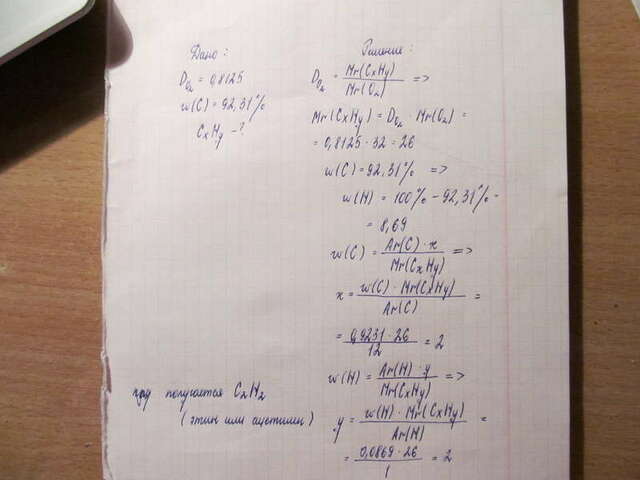 Дано:
D₀₂ = 0,8125
w(C) = 92,31%
CxHy - ?
Решение:
D₀₂ = Mr(CxHy) / Mr(O₂) =>
Mr(CxHy) = D₀₂ · Mr(O₂) =
= 0,8125 · 32 = 26
w(C) = 92,31% =>
w(H) = 100% - 92,31% =
= 8,69
w(C) = Ar(C) · x / Mr(CxHy) =>
x = w(C) · Mr(CxHy) / Ar(C) =
= 0,9231 · 26 / 12 = 2
w(H) = Ar(H) · y / Mr(CxHy) =>
y = w(H) · Mr(CxHy) / Ar(H) =
= 0,0869 · 26 / 1 = 2
получается C₂H₂
(этин или ацетилен)